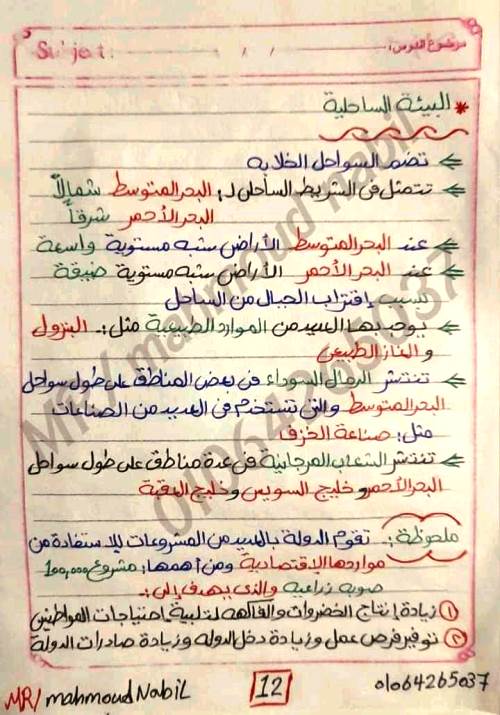 Subject:    /    /    موضوع الدرس:
* البيئة الساحلية
← تضم السواحل الخلابه
← تتمثل فى الشريط الساحلى لـ: البحر المتوسط شمالاً
البحر الأحمر شرقاً
← عند البحر المتوسط الأراض شبه مستوية واسعة
← عند البحر الأحمر الأراض شبه مستوية ضيقة
بسبب إقتراب الجبال من الساحل
← يوجد بها العديد من الموارد الطبيعية مثل:. البترول
و الغاز الطبيعى
← تنتشر الرمال السوداء فى بعض المناطق على طول سواحل
البحر المتوسط والتى تستخدم فى العديد من الصناعات
مثل: صناعة الخزف
← تنتشر الشعاب المرجانية فى عدة مناطق على طول سواحل
البحر الأحمر و خليج السويس و خليج العقبة
ملحوظة:. تقوم الدولة بالعديد من المشروعات للإستفادة من
مواردها الإقتصادية ومن أهمها: مشروع 100,000
صوبه زراعيه والذى يهدف إلى:.
① زيادة إنتاج الخضروات والفاكهه لتلبية احتياجات المواطنين
② توفير فرص عمل وزيادة دخل الدوله وزيادة صادرات الدولة
MR/ mahmoud Nabil    12    01064265037
MR/ mahmoud nabil
01064265037